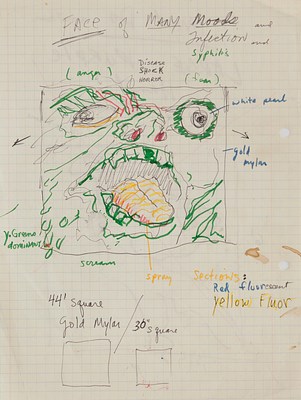 FACE of MANY Moods and
Infection and
Syphilis
DISEASE
SHOCK
HORROR
(anger)
(fear)
white pearl
gold
mylar
dominant
scream
spray
Sections:
Red fluorescent
Yellow Fluor
44" square
Gold Mylar
30" square